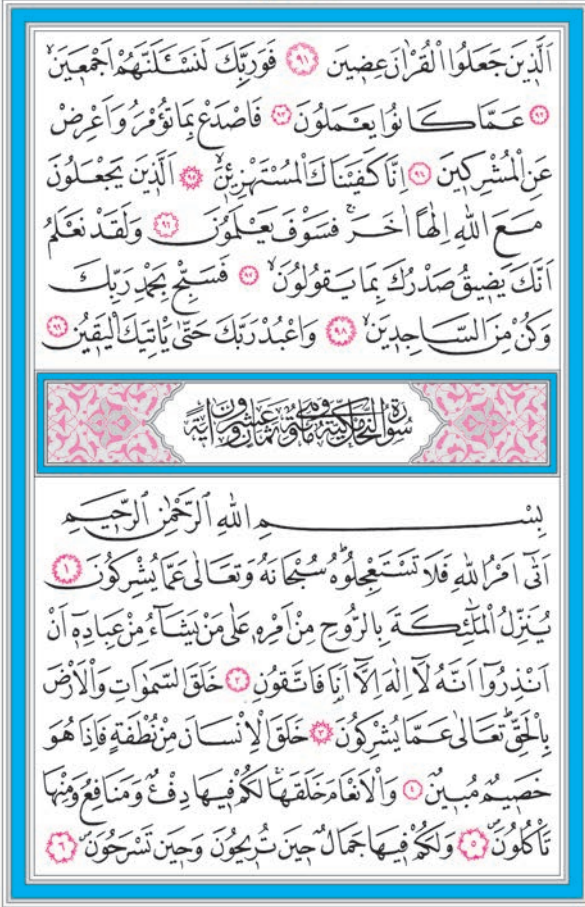 اَلَّذ۪ينَ جَعَلُوا الْقُرْاٰنَ عِض۪ينَ ﴿٩١﴾ فَوَرَبِّكَ لَنَسْـَٔلَنَّهُمْ اَجْمَع۪ينَۙ
﴿٩٢﴾ عَمَّا كَانُوا يَعْمَلُونَ ﴿٩٣﴾ فَاصْدَعْ بِمَا تُؤْمَرُ وَاَعْرِضْ
عَنِ الْمُشْرِك۪ينَ ﴿٩٤﴾ اِنَّا كَفَيْنَاكَ الْمُسْتَهْزِء۪ينَۙ ﴿٩٥﴾ اَلَّذ۪ينَ يَجْعَلُونَ
مَعَ اللّٰهِ اِلٰهًا اٰخَرَۚ فَسَوْفَ يَعْلَمُونَ ﴿٩٦﴾ وَلَقَدْ نَعْلَمُ
اَنَّكَ يَض۪يقُ صَدْرُكَ بِمَا يَقُولُونَۙ ﴿٩٧﴾ فَسَبِّحْ بِحَمْدِ رَبِّكَ
وَكُنْ مِنَ السَّاجِد۪ينَۙ ﴿٩٨﴾ وَاعْبُدْ رَبَّكَ حَتّٰى يَأْتِيَكَ الْيَق۪ينُ ﴿٩٩﴾
سُورَةُ النَّحْلِ مَكِّيَّةٌ وَهِيَ مِائَةٌ وَثَمَانٍ وَعِشْرُونَ اٰيَةً
بِسْمِ اللّٰهِ الرَّحْمٰنِ الرَّح۪يمِ
اَتٰٓى اَمْرُ اللّٰهِ فَلَا تَسْتَعْجِلُوهُۜ سُبْحَانَهُ وَتَعَالٰى عَمَّا يُشْرِكُونَ ﴿١﴾
يُنَزِّلُ الْمَلٰٓئِكَةَ بِالرُّوحِ مِنْ اَمْرِه۪ عَلٰى مَنْ يَشَٓاءُ مِنْ عِبَادِه۪ٓ اَنْ
اَنْذِرُٓوا اَنَّهُ لَٓا اِلٰهَ اِلَّٓا اَنَا۬ فَاتَّقُونِ ﴿٢﴾ خَلَقَ السَّمٰوَاتِ وَالْاَرْضَ
بِالْحَقِّۜ تَعَالٰى عَمَّا يُشْرِكُونَ ﴿٣﴾ خَلَقَ الْاِنْسَانَ مِنْ نُطْفَةٍ فَاِذَا هُوَ
خَص۪يمٌ مُب۪ينٌ ﴿٤﴾ وَالْاَنْعَامَ خَلَقَهَاۚ لَكُمْ ف۪يهَا دِفْءٌ وَمَنَافِعُ وَمِنْهَا
تَأْكُلُونَۖ ﴿٥﴾ وَلَكُمْ ف۪يهَا جَمَالٌ ح۪ينَ تُر۪يحُونَ وَح۪ينَ تَسْرَحُونَۖ ﴿٦﴾